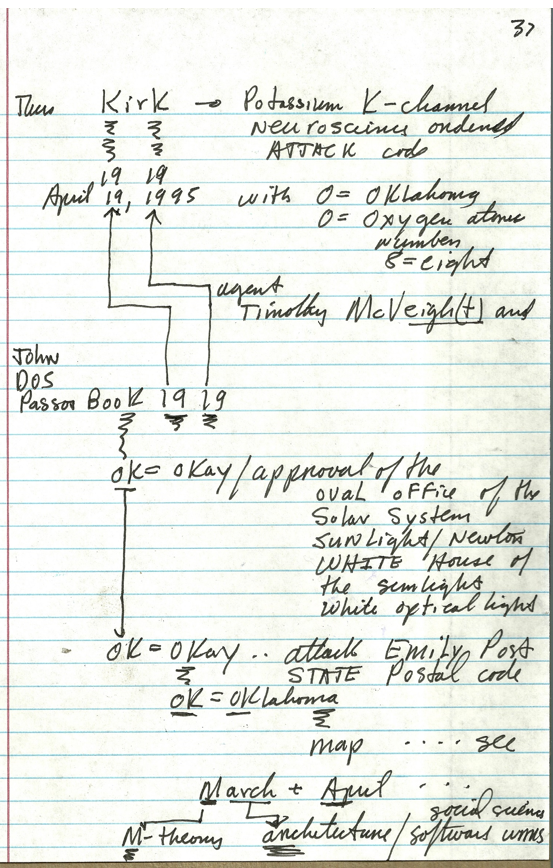 37
Thus KirK → Potassium K-channel
Neuroscience ordered
ATTACK code
19 19
April 19, 1995 with O = OKlahoma
O = Oxygen atomic
number
8 = eight
agent
Timothy McVeigh(t) and
John
DOS
Passos BooK 19 19
OK = OKay / approval of the
oval office of the
Solar System
sunlight / Newton
WHITE House of
the sunlight
White optical light
OK = OKay .. attack Emily Post
STATE Postal code
OK = OKlahoma
map .... see
March + April ..
M-theory architecture / social science
software